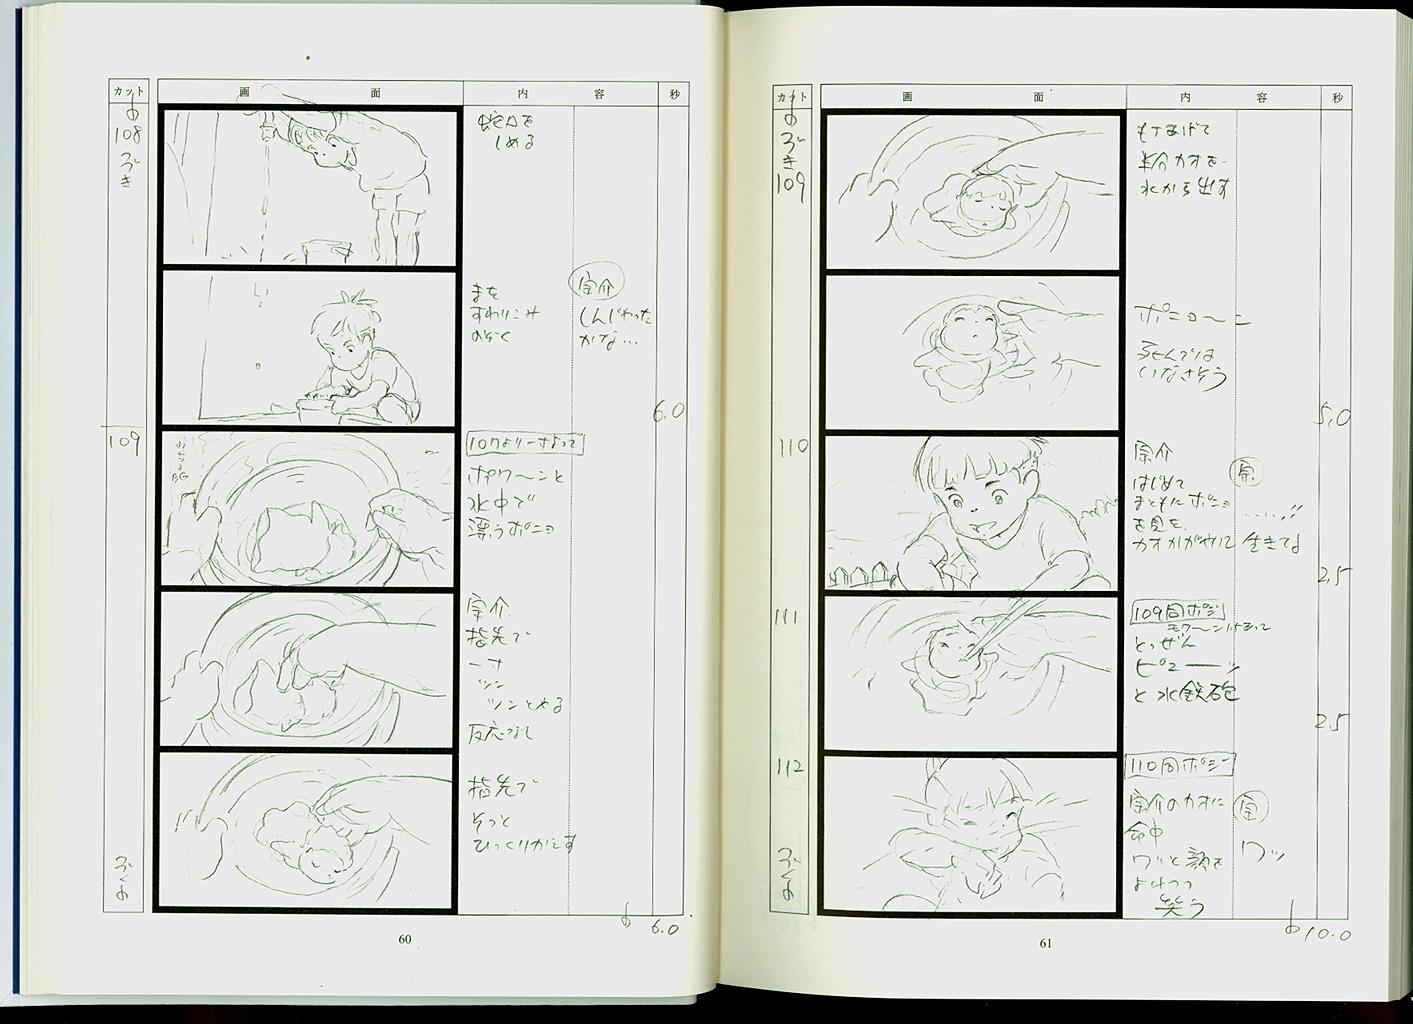 カット
画 面
内 容
秒
の
108
つづき
蛇口を
しめる
宗介
まを
すわりこみ
のぞく
しんじゃった
かな…
6.0
109
107より一寸よって
ポワ〜ンと
水中で
漂うポニョ
BG
宗介
指先で
一寸
ツン
ツンとやる
反応なし
指先で
そっと
ひっくりかえす
つづく
6.0
60
カット
画 面
内 容
秒
の
つづき
109
もちあげて
半分カオを
水から出す
ポニョ〜ン
死んでは
いなさそう
5.0
110
宗介
はじめて
まともにポニョ
を見る
カオかがやいて
宗
……!!
生きてる
2.5
111
109同ポジ
とつぜん
ピューーッ
と水鉄砲
2.5
112
110同ポジ
宗介のカオに
命中
ワッと顔を
よけつつ
笑う
宗
ワッ
10.0
61